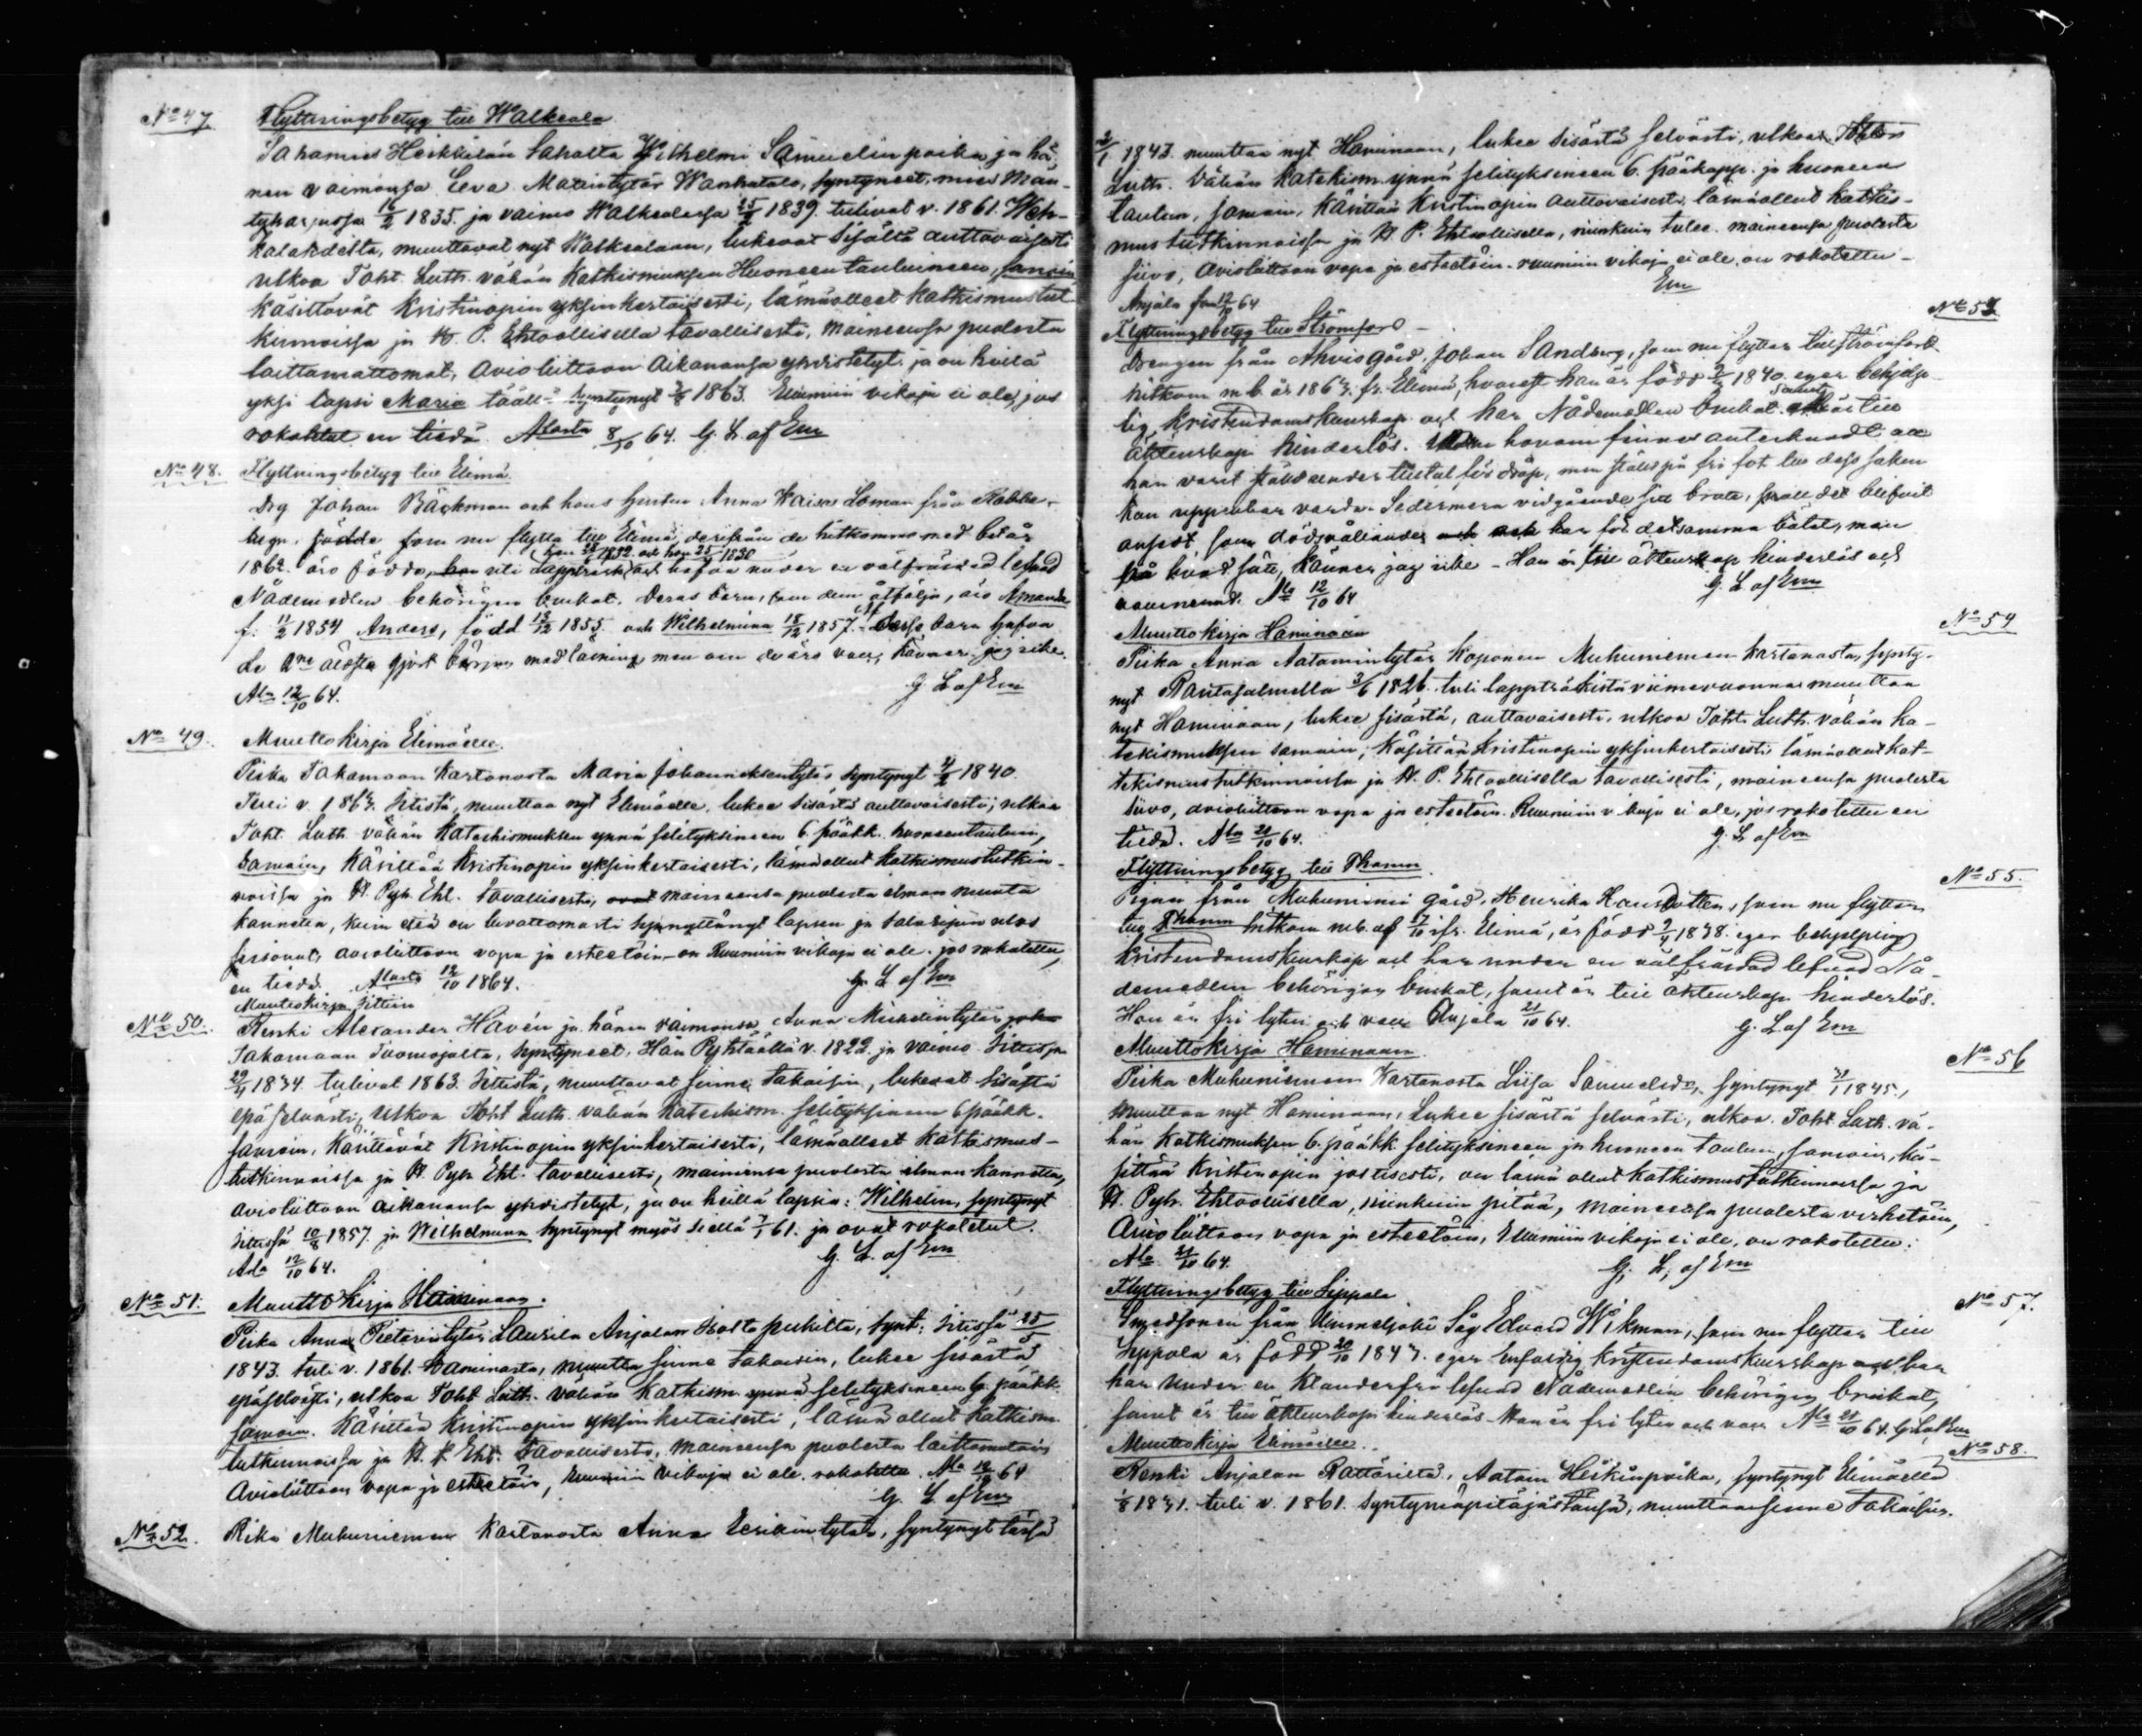 No 47 Flyttningsbetyg till Walkeala
Sahamies Heikkilän Sahalta Wilhelmi Samuelin poika ja hä-
nen vaimonsa Eeva Matintytär Wanhatalo, syntyneet, mies Män-
tyharjussa 16/2 1835 ja vaimo Walkealassa 25/2 1839. tulivat v. 1861 Weh-
kalahdelta, muuttavat nyt Walkealaan, lukevat sisältä auttavaisesti
ulkoa Toht. Luth. vähän Katkismuksen Huoneentauluineen, samoin
Käsittävät Kristinopin yksinkertaisesti, läsnäolleet Katkismustut-
kinnoissa ja H. P. Ehtoollisella tavallisesti, maineensa puolesta
laittamattomat, avioliittoon Aikanansa yhdistetyt ja on heillä
yksi lapsi Maria tääll- syntynyt 1863. Ruumiin vikoja ei ole, jos
rokotetut en tiedä. 8/10 64. G. L. af Em
No 48. Flyttningsbetyg till Elimä
Drg Johan Bäckman och hans hustru Anna Kaisa Loman från Rabbe-
lugn, födde som nu flytta till Elimä, derifrån de hitkommo med bet. år
han 1832 och hon 25/ 1830
1862. äro födda, han uti Lappträsk och hafva under en välfräjdad lefnad
Nådemedlen behörigen brukat. Deras barn, som dem åtfölja, äro Amanda
f. 11/2 1854 Anders, född 13/12 1855 och Wilhelmina 18/12 1857. Dessa barn hafva
de 2ne äldsta gjort början med läsning men om de äro vacc. känner jag icke.
Ala 12/10 64. G L af Em
No 49. Muuttokirja Elimäelle.
Piika Takamaan Kartanosta Maria Johanneksentytär syntynyt 4/2 1840.
Tuli v. 1863 Iitistä, muuttaa nyt Elimäelle, lukee sisältä auttavaisesti; ulkoa
Toht. Luth. vähän Katechismuksen ynnä selityksineen 6 pääkk. huoneentaulun,
Samoin, Käsittää Kristinopin yksinkertaisesti, läsnäollut Katkismustutkin-
noissa ja H. Pyh. Eht. tavallisesti, maineensa puolesta ilman muuta
kannetta, kuin että on luvattomasti synnyttänyt lapsen ja
avioliittoon vapa ja esteetöin - on Ruumiin vikoja ei ole. jos rokotettu,
en tiedä. 12/10 1864. G. L af Em
Muuttokirja Iittiin
No 50. Renki Alexander Havén ja hänen vaimonsa Anna Mickelintytär
Takamaan Tuomojalta, syntyneet, Hän Pyhtäällä v. 1822 ja vaimo Iitissä
29/4 1834 tulivat 1863 Iitistä, muuttavat sinne takaisin, lukevat sisältä
epäselvästi, ulkoa Toht Luth. vähän Katechism. selityksineen 6 pääkk.
samoin, Käsittävät Kristinopin yksinkertaisesti, läsnäolleet Katkismus-
tutkinnoissa ja H. Pyh. Eht. tavallisesti, maineensa puolesta ilman kannetta,
avioliittoon aikanansa yhdistetyt, ja on heillä lapsia: Wilhelm, syntynyt
Iitissä 10/8 1857 ja Wilhelmina syntynyt myös siellä 7/1 61. ja ovat rokotetut.
Ala 12/10 64. G. L. af Em
No 51. Muutto Kirja Haminaan.
Piika Anna Pietarintytär Laurila Anjalan Holtopukilta, synt. Iitissä 25/5
1843. tuli v. 1861. Haminasta, muutta sinne takaisin, lukee sisältä
epäselvästi, ulkoa Toht Luth. vähän Katkism. ynnä selityksineen 6. pääkk
samoin. Käsittää Kristinopin yksinkertaisesti, läsnä ollut Katkism-
tutkinnoissa ja H. P. Eht. tavallisesti, maineensa puolesta laittamatoin
Avioliittoon vapa ja esteetöin, Ruumiin vikoja ei ole. rokotettu. Ala 12/10 64
G. L af Em
No 52. Piika Muhuniemen Kartanosta Anna Eerikintytär, syntynyt tässä
2/1 1843. muuttaa nyt Haminaan, lukee sisältä selvästi, ulkoa Toht
Luth. Vähän Katekism. ynnä selityksineen 6. pääkapp. ja huoneen
taulun, samoin, Käsittää Kristinopin auttavaisesti, läsnäollut Katkis-
mustutkinnoissa ja H. P. Ehtoollisella, niinkuin tulee. maineensa puolesta
siivo, avioliittoon vapa ja esteetöin. ruumiin vikoja ei ole. on rokotettu -
Anjala 12/10 64 Em
No 53
Flyttningsbetyg till Strömfors -
Drengen från Ahvis gård, Johan Sandberg, som nu flyttar till Strömfors
hitkom m. b. år 1863. fr. Elimä, hvarest han är född 1840. eger behjelp-
lig Kristendomskunskap och har Nådemedlen brukat. samt är till
äktenskap hinderlös. honom finnes antecknadt att
han varit ställd under tilltal för dråp, men ställd på fri fot till dess saken
kan uppenbar varda. Sedermera vidgående sitt brott,
ansedt som dödsvållande och har för detsamma bötat, men
på hvad sätt, känner jag icke - Han är till äktenskap hinderlös och
vaccinerad. Ala 12/10 64 G. L af Em
No 54
Muuttokirja Haminaan
Piika Anna Aatamintytär Koponen Muhuniemen Kartanosta, synty-
nyt Rantasalmella 3/6 1826. tuli lappträskistä viimevuonna muuttaa
nyt Haminaan, lukee sisältä, auttavaisesti, ulkoa Toht. Luth. vähän ka-
tekismuksen samoin, Käsittää Kristinopin yksinkertaisesti, läsnäollut kat-
tekismustutkinnoissa ja H. P. Ehtoollisella tavallisesti, maineensa puolesta
siivo, avioliittoon vapa ja esteetöin. Ruumiin vikoja ei ole, jos rokotettu en
tiedä. Ala 21/10 64. G. L af Em
No 55.
Flyttningsbetyg till Thamm
Pigan från Muhuniemi gård, Henrika Hansdotter, som nu flyttar
till Thamm hitkom m. b. af 17/10 fr. Elimä, är född 9/4 1838. eger behjelplig
Kristendomskunskap och har under en välfräjdad lefnad Nå-
demedlen behörigen brukat, samt är till äktenskap hinderlös.
Hon är fri lyten och vacc. Anjala 21/10 64. G. L af Em
No 56
Muuttokirja Haminaan
Piika Muhuniemen Kartanosta Liisa Samuelsdr, syntynyt 1845.,
muuttaa nyt Haminaan, lukee sisältä selvästi, ulkoa. Toht. Luth. vä-
hän Katkismuksen 6. pääkk selityksineen ja huoneen taulun, samoin, kä-
sittää Kristinopin jostisesti, on läsnä ollut Katkismustutkinnoissa ja
H. Pyh. Ehtoollisella, niinkuin pitää, maineensa puolesta virhetöin,
Avioliittoon vapa ja esteetöin, Ruumiin vikoja ei ole. on rokotettu.
Ala 21/10 64. G. L. af Em
No 57.
Flyttningsbetyg till Sippola
Smedsonen från Ummeljoki Såg Edvard Wikman, som nu flyttar till
Sippola är född 20/10 1847. eger enfaldig Kristendomskunskap och har
har under en klanderfri lefnad Nådemedlen behörigen brukat,
samt är till äktenskap hinderlös - Han är fri lyten och vacc. Ala 21/10 64. G. L af Em
No 58.
Muuttokirja Elimäelle.
Renki Anjalan Rattärilta, Aatam Heikinpoika, syntynyt Elimäellä
1831. tuli v. 1861. syntymäpitäjästänsä, muuttaa sinne takaisin.